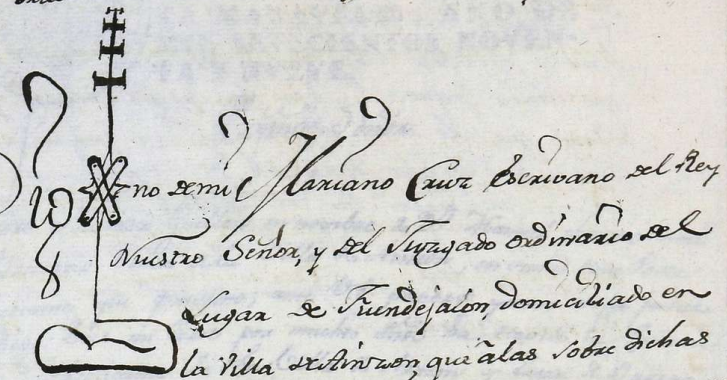 Sig no de mi Mariano Cruz Escrivano del Rey
Nuestro Señor, y del Juzgado ordinario del
Lugar de Fuendejalon, domiciliado en
la Villa de Ainzon, que â las sobre dichas